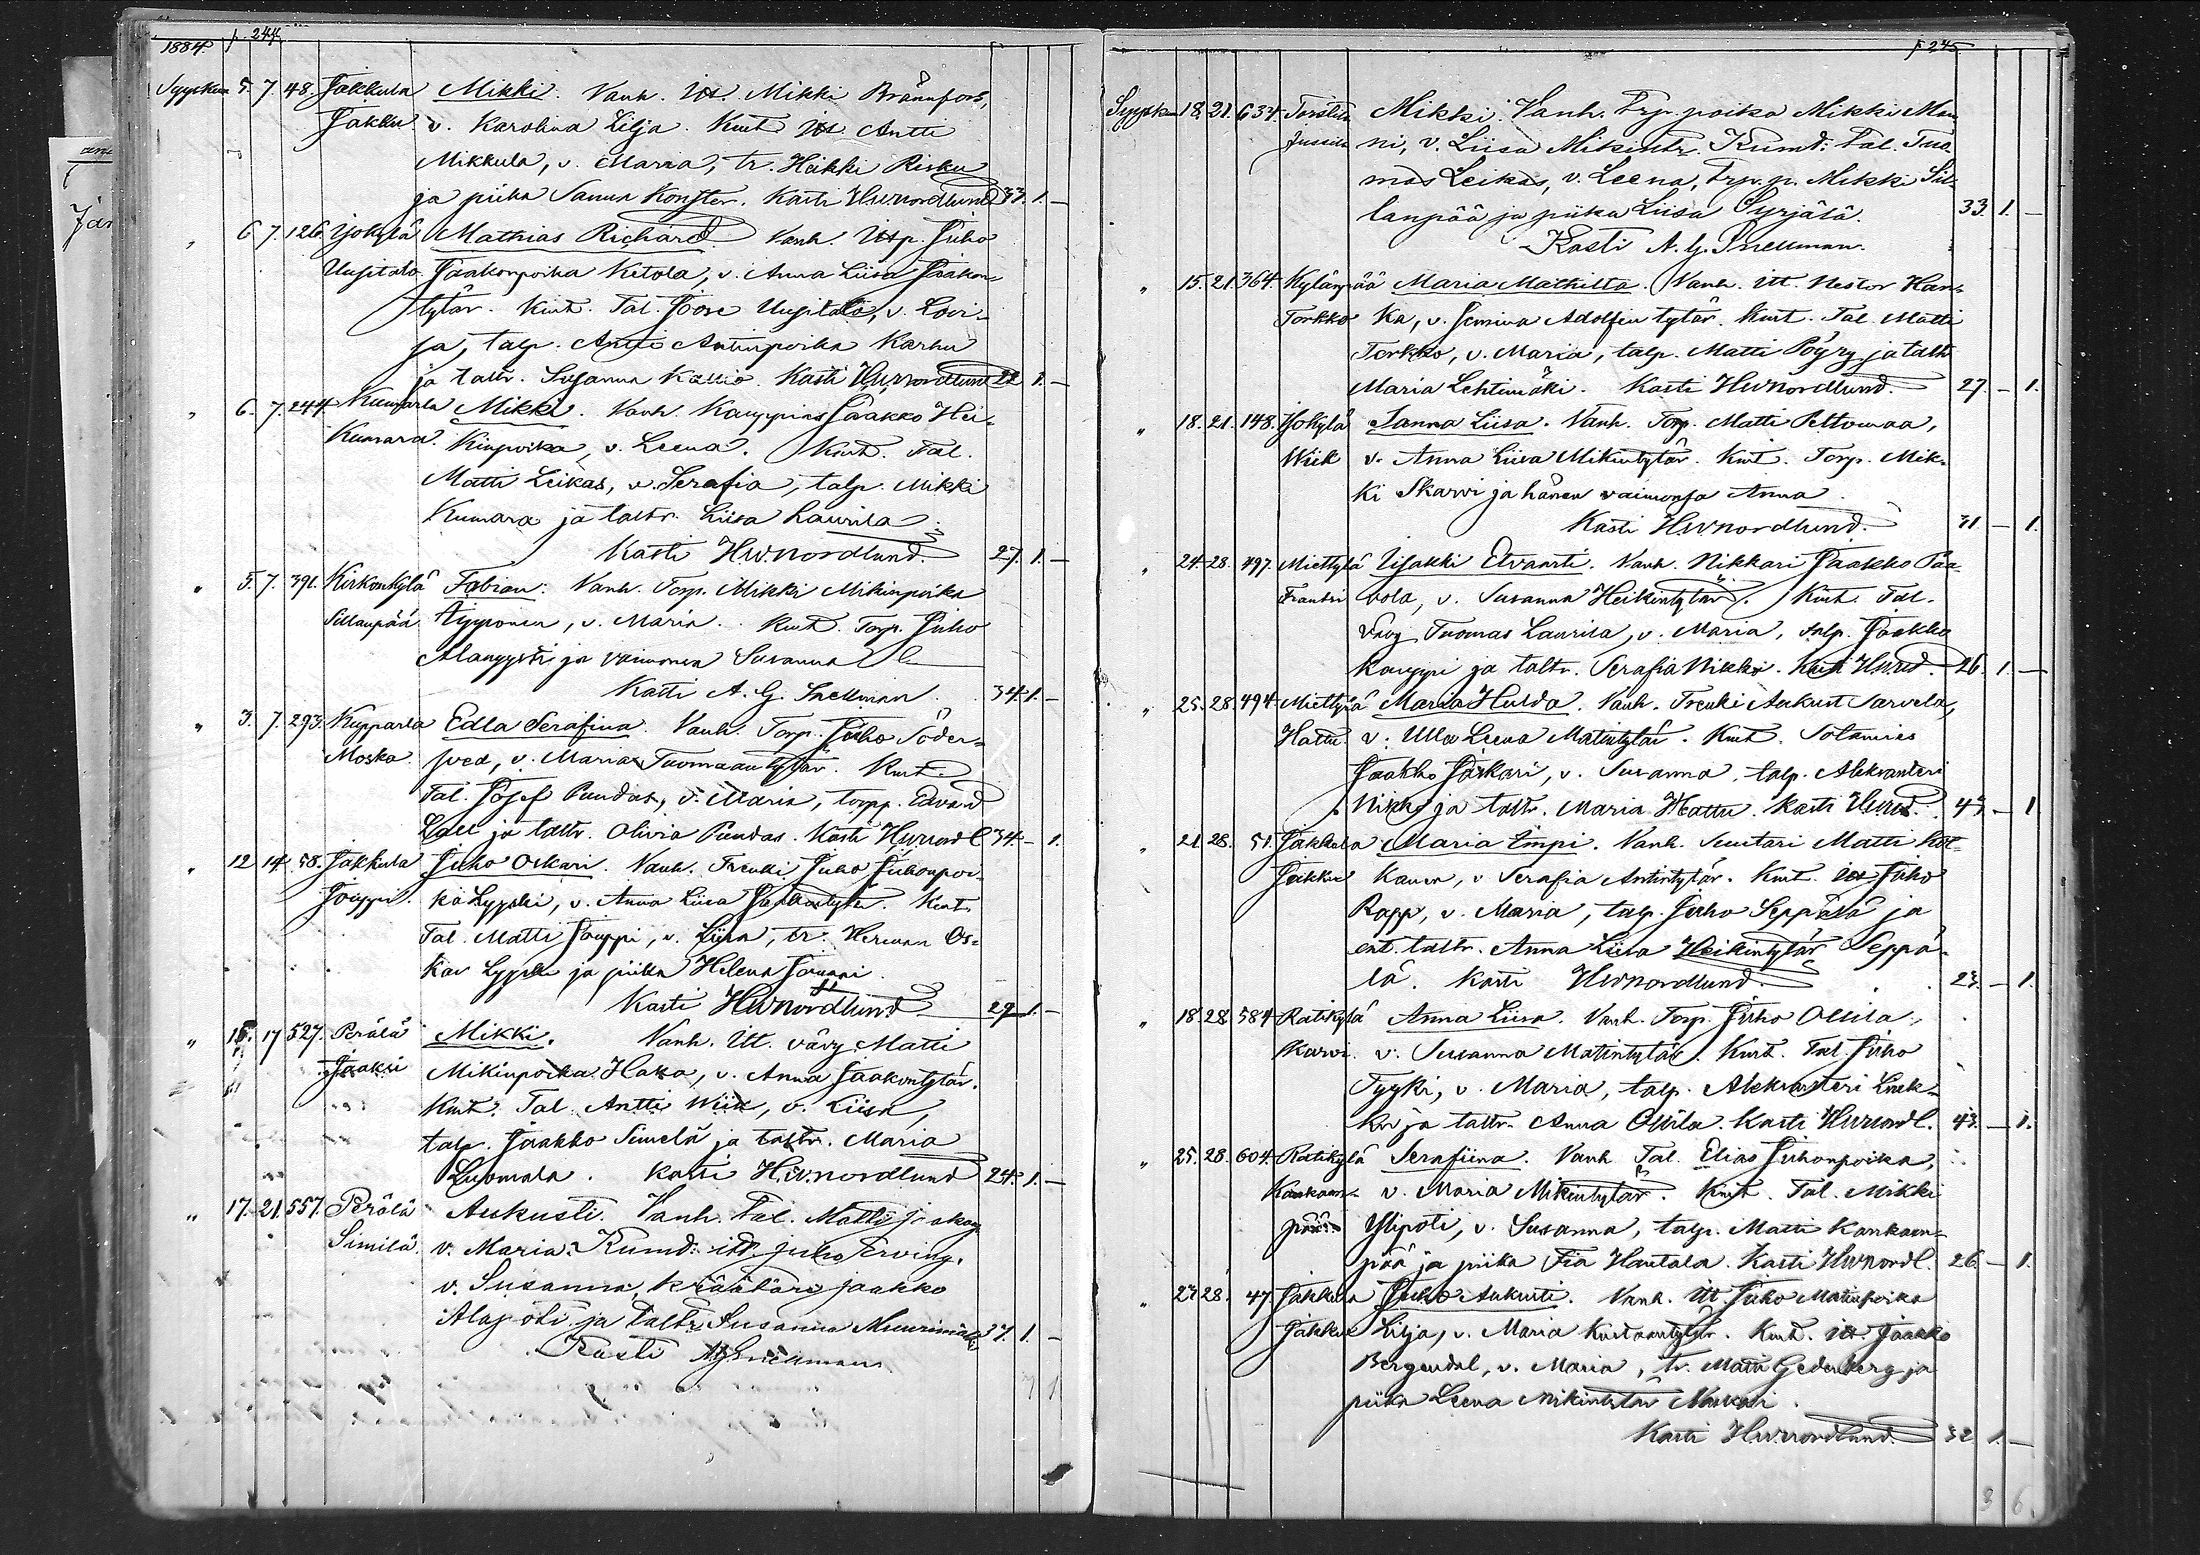 1884. p. 244.
Syyskuu 5. 7. 48. Jakkula Mikki. Vanh. Itt. Mikki Brännfors,
Jakku v. Karolina Lilja. Kmt Itt Antti
Mikkula, v. Maria, tr. Heikki Risku
ja piika Sanna Konster. Kasti HWNordlund 33. 1. —
" 6 7. 126 Yjokylä Mathias Richard Vanh. Ittp. Juho
Uusitalo Jaakonpoika Ketola, v. Anna Liisa Jaakon-
tytär. Kmt. Tal. Joose Uusitalo, v. Lovi-
sa, talp. Antti Antinpoika Karhu
ja taltr. Susanna Kallio. Kasti HWNordlund 22 1. —
" 6. 7. 244. Kumarla Mikki. Vanh. Kauppias Jaakko Hei-
Kumara. kinpoika, v. Leena. Kmt. Tal.
Matti Leikas, v. Serafia, talp. Mikki
Kumara ja taltr. Liisa Laurila
Kasti H.W.Nordlund. 27. 1. —
" 5. 7. 391. Kirkonkylä Fabian. Vanh. Torp. Mikki Mikinpoika
Sillanpää v. Maria. Kmt. Torp. Juho
ja vaimonsa Susanna
Kasti A. G. Snellman. 34. 1. —
" 3. 7. 293. Kupparla Edla Serafina. Vanh. Torp. Juho Söder-
Moska. sved, v. Maria Tuomaantytär. Kmt.
Tal. Josef Pundas, v. Maria, torpp. Edvard
Lall ja taltr. Olivia Pundas. Kasti HWNordl. 34. — 1.
" 12 14. 58. Jakkula Juho Oskari. Vanh. Trenki Juho Juhonpoi-
Jouppi. ka Lyyski, v. Anna Liisa Kmt.
Tal. Matti Jouppi, v. Liisa, tr. Herman Os-
kar Lyyski ja piika Helena Jouppi.
Kasti HWNordlund 29 1. —
" 15. 17 527. Perälä Mikki. Vanh. Itt. vävy Matti
Jaakri Mikinpoika Haka, v. Anna Jaakontytär.
Kmt. Tal. Antti Wiik, v. Liisa,
talp. Jaakko Simelä ja taltr. Maria
Luomala. Kasti H.W.Nordlund 24. 1. —
" 17. 21. 557. Perälä Aukusti. Vanh. Tal. Matti
Similä v. Maria. Kumd. itt. Juho Terving,
v. Susanna, kräätäri Jaakko
Alapoti ja taltr. Susanna Muurimäki 37. 1. —
Kasti AGSnellman
p 245
Syyskuu 18. 21. 634. Torstila Mikki. Vanh. Trp. poika Mikki Man
Jussila ni, v. Liisa Mikintr. Kumd. Tal. Tuo-
mas Leikas, v. Leena, Trp. p. Mikki Sil-
lanpää ja piika Liisa Syrjälä. 33. 1. —
Kasti A. G. Snellman.
" 15. 21. 364. Kylänpää Maria Matilta. Vanh. Itt. Nestor Han-
Torkko ka, v. Jemina Adolfintytär. Kmt. Tal. Matti
Torkko, v. Maria, talp. Matti Pöyry ja taltr
Maria Lehtimäki. Kasti HWNordlund. 27. — 1.
" 18. 21. 148. Yjokylä Sanna Liisa. Vanh. Torp. Matti Peltomaa,
Wiik v. Anna Liisa Mikintytär. Kmt. Torp. Mik-
ki Skarvi ja hänen vaimonsa Anna.
Kasti HWNordlund. 31 — 1.
" 24. 28. 497. Miettylä Iisakki Edvartti. Vanh. Nikkari Jaakko Paa-
Frantsi vola, v. Susanna Heikintytär. Kmt. Tal.
vävy Tuomas Laurila, v. Maria, talp. Jaakko
Kauppi ja taltr. Serafia Nikko. Kasti HWNd. 26. 1. —
" 25. 28. 494. Miettylä Maria Hulda. Vanh. Trenki Aukust Sarvela,
Hattu v. Ulla Leena Matintytär. Kmt. Sotamies
Jaakko Jaskari, v. Susanna, talp. Aleksanteri
Nikko ja taltr. Maria Hattu. Kasti HWNd. 43 — 1
" 21. 28. 51. Jakkula Maria Empi. Vanh. Suutari Matti Kol-
Jaakku kanen, v Serafia Antintytär. Kmt. Itt Juho
Rapp, v. Maria, talp. Juho Seppälä ja
ent. taltr. Anna Liisa Heikintytär Seppä-
lä. Kasti HWNordlund. 23. — 1.
" 18 28 584 Ratikylä Anna Liisa. Vanh. Torp. Juho Ollila,
Skarvi. v. Susanna Matintytär. Kmt. Tal. Juho
Tyyki, v. Maria, talp. Aleksanteri Link-
ku ja taltr. Anna Ollila. Kasti HWNordl. 43. — 1.
" 25. 28. 604. Ratikylä Serafiina. Vanh. Tal. Elias Juhonpoika,
Kankaan- v. Maria Mikintytär. Kmt. Tal. Mikki
pää. Ylipoti, v. Susanna, talp. Matti Kankaan-
pää ja piika Fia Hautala. Kasti HWNordl. 26 — 1.
" 27. 28. 47. Jakkula Juho Aukusti. Vanh. Itt. Juho Matinpoika
Jakku Lilja, v. Maria Kustaantytär. Kmt. Itt. Jaakko
Bergendal, v. Maria, tr. Matti Gederberg ja
piika Leena Mikintytär
Kasti HWNordlund. 32 1. —
3 6.